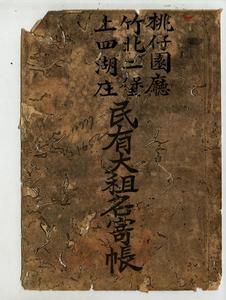 桃仔園廳
竹北二堡
上四湖庄
民有大租名寄帳